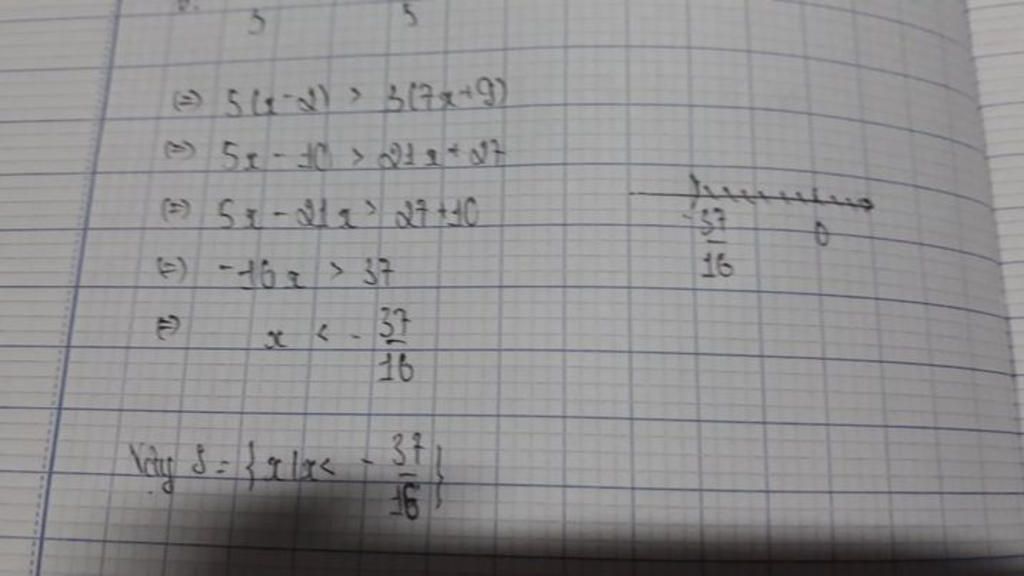 3 5
(=) 5(x-2) > 3(7x+9)
(=) 5x - 10 > 21x + 27
(=) 5x - 21x > 27+10
(=) -16x > 37
(=) x < - 37/16
Vậy S = {x/x< - 37/16}
-37/16 0